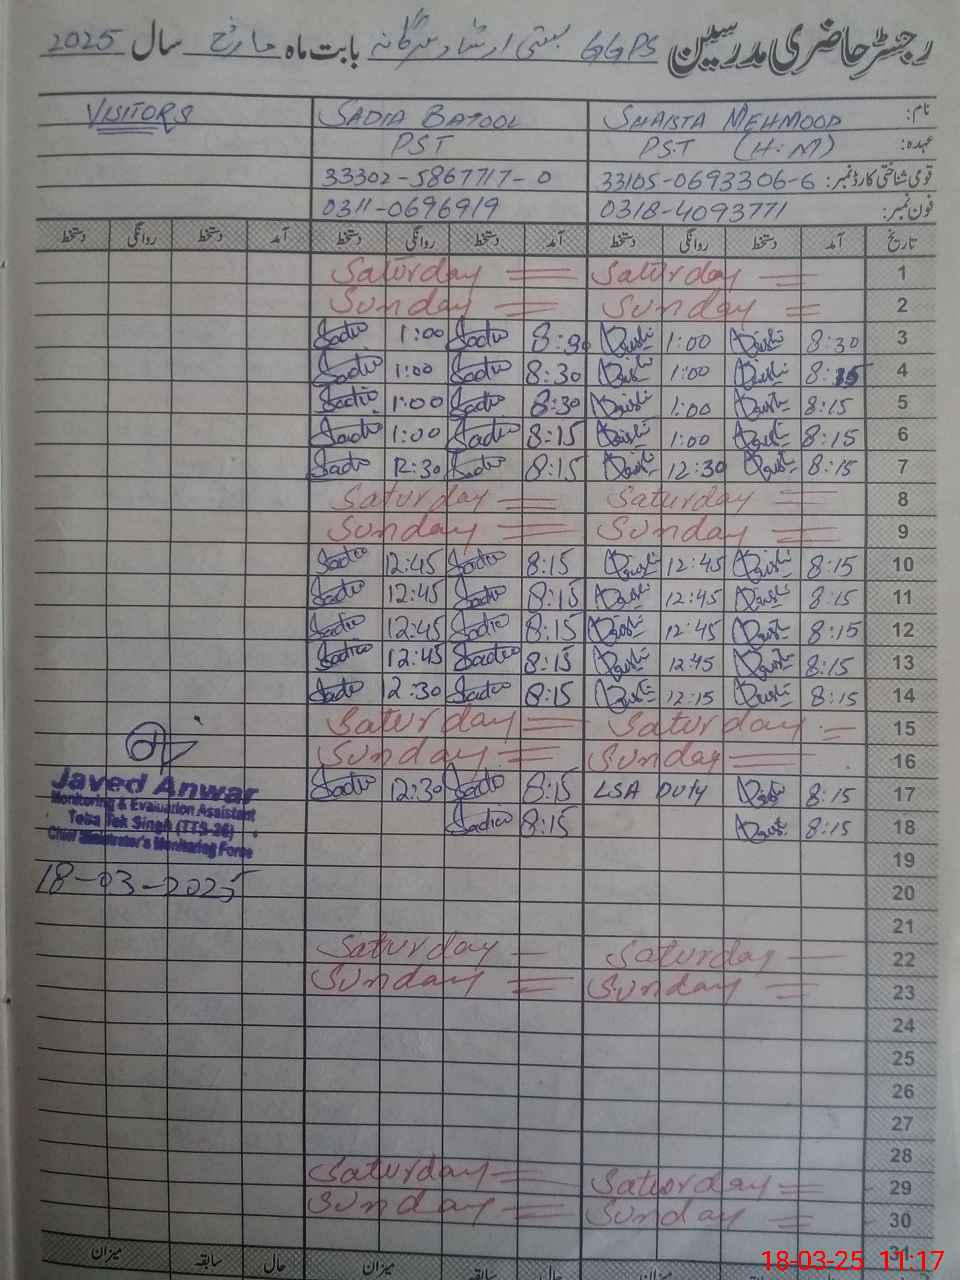 رجسٹر حاضری مدرسین GGPS بستی ارشاد بابت ماہ مارچ سال 2025
نام: SHAISTA MEHMOOD SADIA BATOOL VISITORS
عہدہ: PST (H.M) PST
قومی شناختی کارڈ نمبر: 33105-0693306-6 33302-5867717-0
فون نمبر: 0318-4093771 0311-0696919
تاریخ آمد دستخط روانگی دستخط آمد دستخط روانگی دستخط آمد دستخط روانگی دستخط
1 Saturday Saturday
2 Sunday Sunday
3 8:30 1:00 8:30 Sadia 1:00 Sadia
4 8:15 1:00 8:30 Sadia 1:00 Sadia
5 8:15 1:00 8:30 Sadia 1:00 Sadia
6 8:15 1:00 8:15 Sadia 1:00 Sadia
7 8:15 12:30 8:15 Sadia 12:30 Sadia
8 Saturday Saturday
9 Sunday Sunday
10 8:15 12:45 8:15 Sadia 12:45 Sadia
11 8:15 12:45 8:15 Sadia 12:45 Sadia
12 8:15 12:45 8:15 Sadia 12:45 Sadia
13 8:15 12:45 8:15 Sadia 12:45 Sadia
14 8:15 12:15 8:15 Sadia 12:30 Sadia
15 Saturday Saturday
16 Sunday Sunday
17 8:15 LSA DUTY 8:15 Sadia 12:30 Sadia
18 8:15 8:15 Sadia
Javed Anwar
Monitoring & Evaluation Assistant
Toba Tek Singh (TTS-26)
Chief Minister's Monitoring Force
18-03-2025
19
20
21
22 Saturday Saturday
23 Sunday Sunday
24
25
26
27
28
29 Saturday Saturday
30 Sunday Sunday
31
میزان سابقہ حال میزان سابقہ حال میزان
18-03-25 11:17